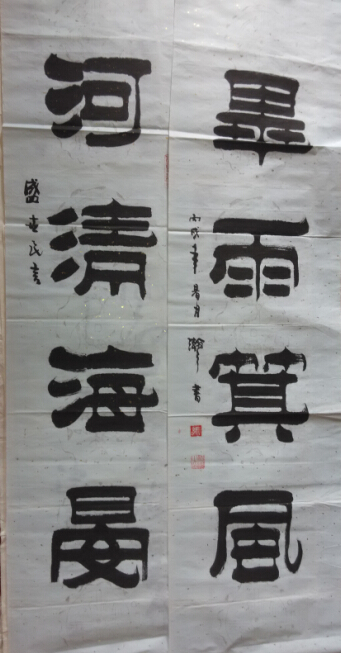 畢雨箕風
丙戌年月書
河清海晏
盛世民